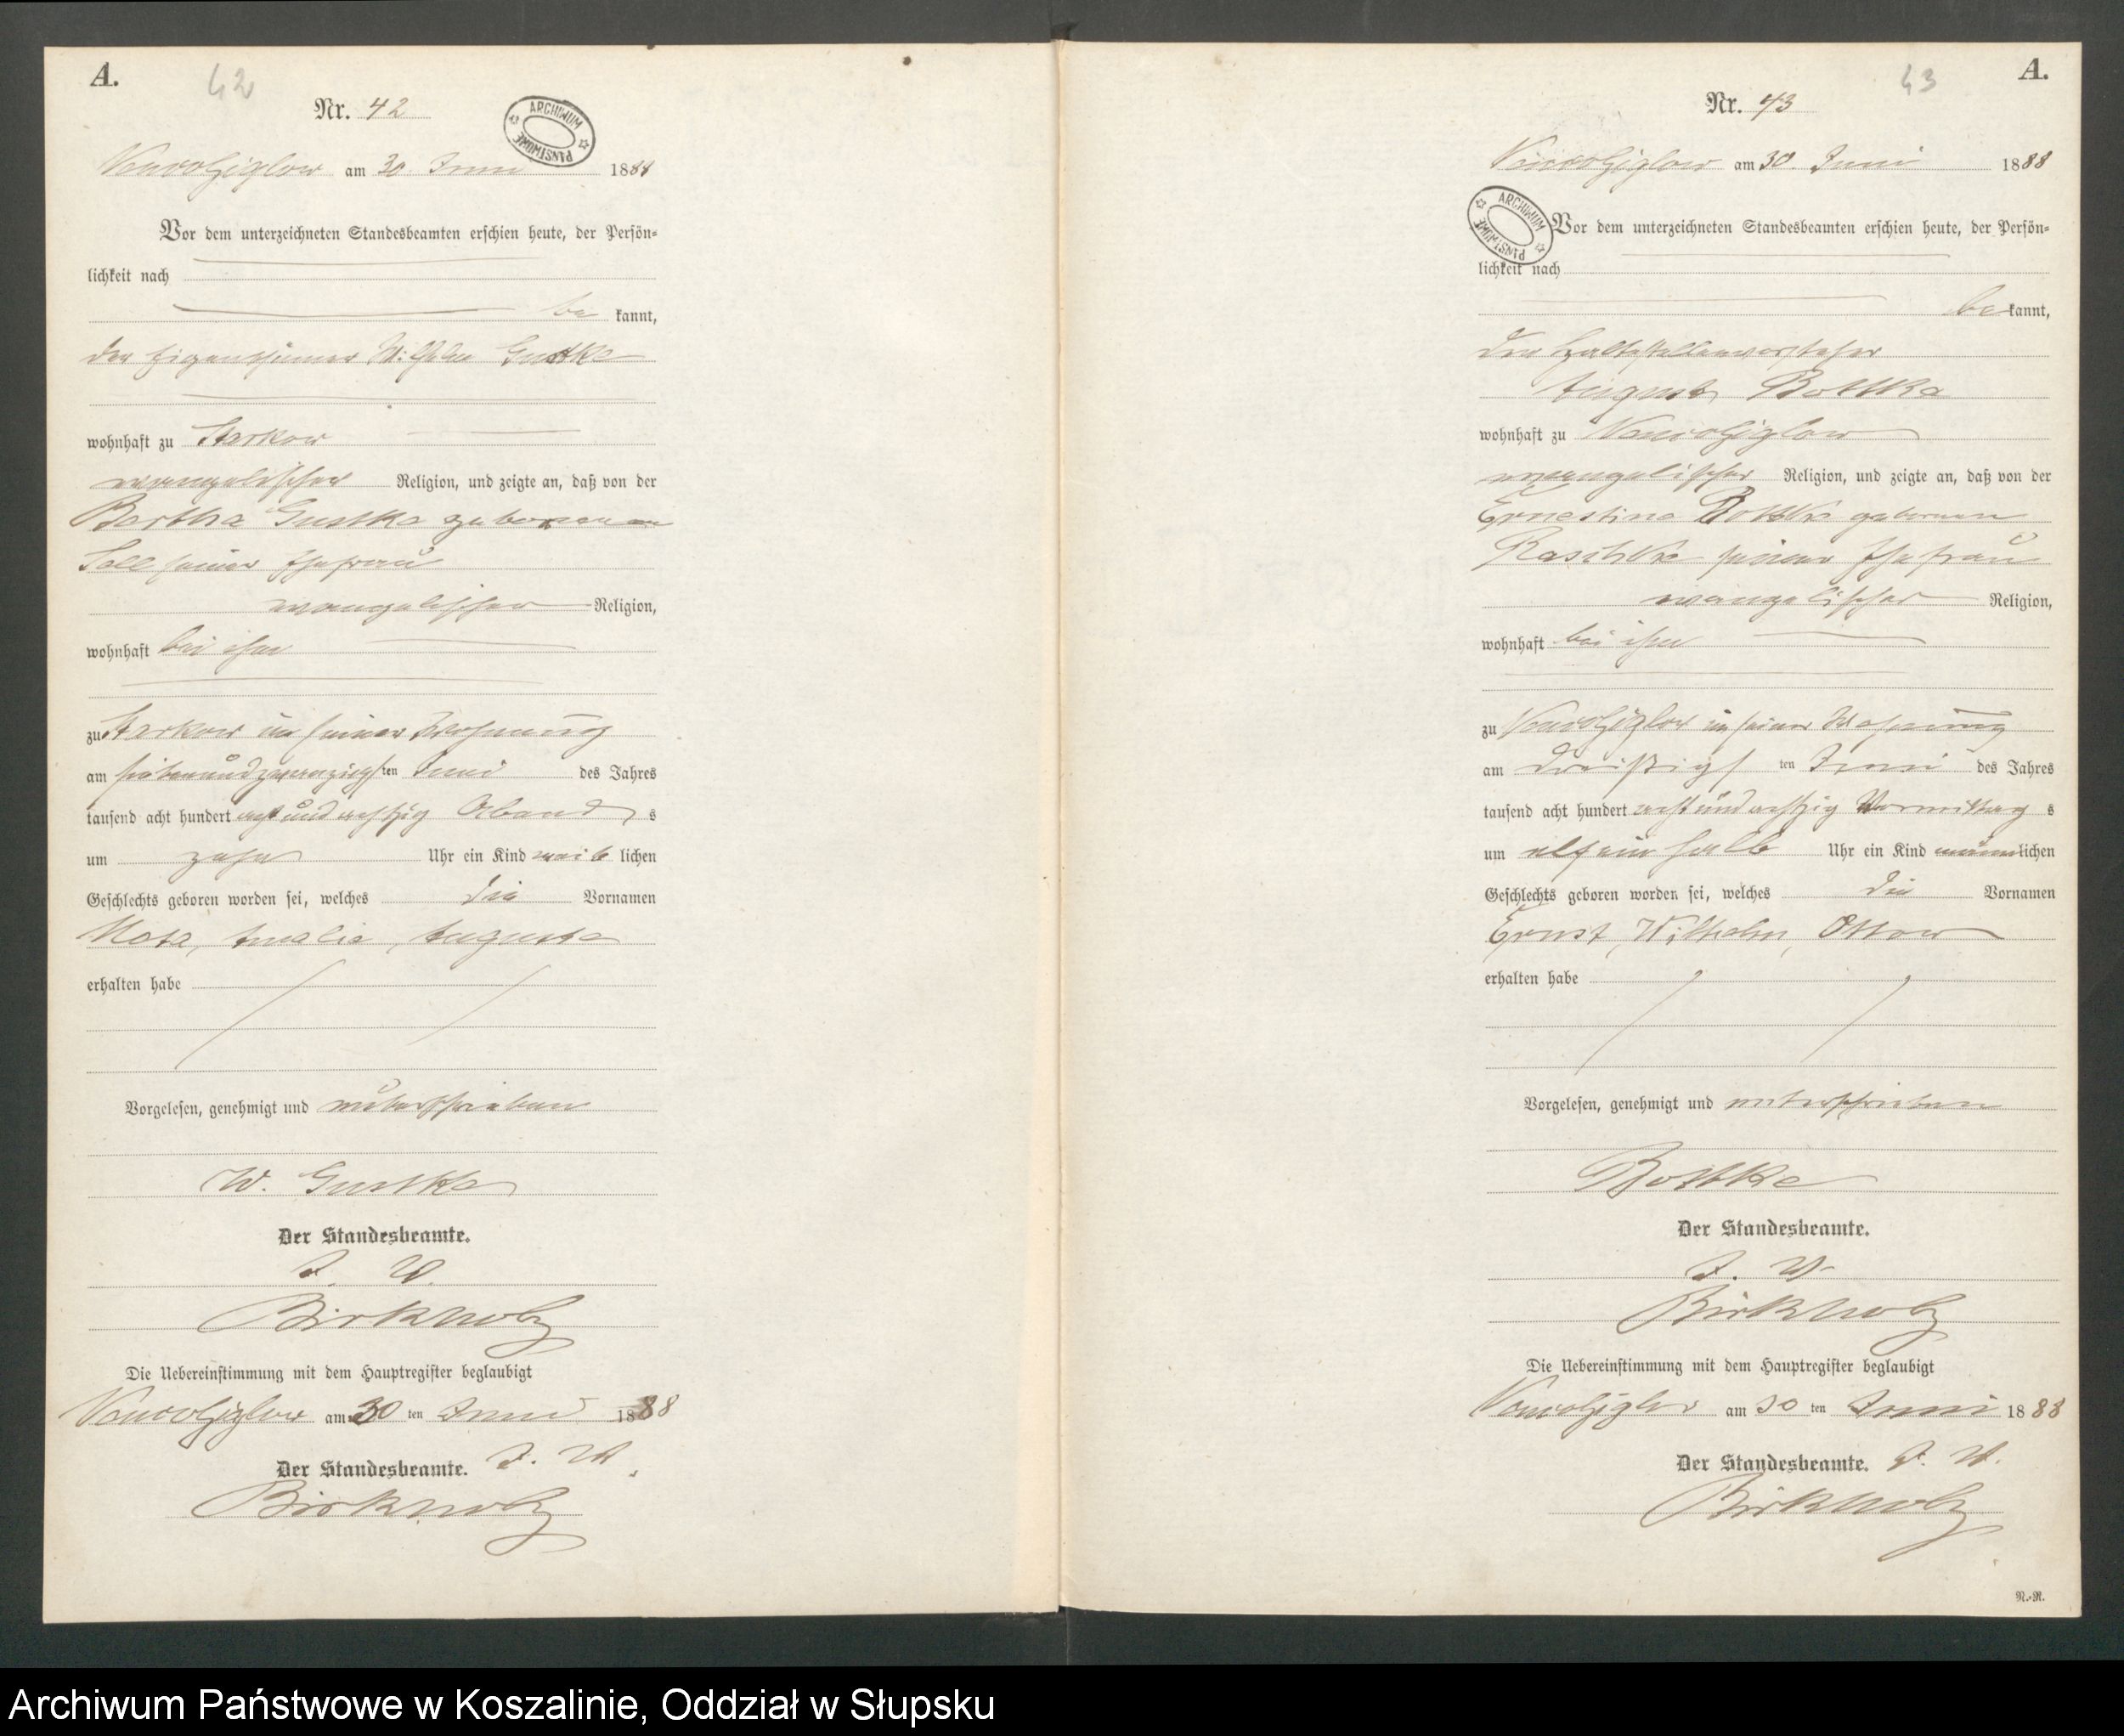 A.
42
Nr. 42
ARCHIWUM PAŃSTWOWE
am 30. Juni 1888
Vor dem unterzeichneten Standesbeamten erschien heute, der Persön=
lichkeit nach
be kannt,
der Eigenthümer Wilhelm Gustke
wohnhaft zu Starkow
evangelischer Religion, und zeigte an, daß von der
Bertha Gustke geborenen
Soll seiner Ehefrau
evangelischer Religion,
wohnhaft bei ihm
zu Starkow in seiner Wohnung
am siebenundzwanzigsten Juni des Jahres
tausend acht hundert achtundachtzig Abend s
um zehn Uhr ein Kind weib lichen
Geschlechts geboren worden sei, welches die Vornamen
Amalie, Auguste
erhalten habe
Vorgelesen, genehmigt und unterschrieben
W. Gustke
Der Standesbeamte.
J. V.
Birkholz
Die Uebereinstimmung mit dem Hauptregister beglaubigt
am 30 ten Juni 1888
Der Standesbeamte. J. V.
Birkholz
A.
43
Nr. 43
am 30. Juni 1888
ARCHIWUM PAŃSTWOWE
Vor dem unterzeichneten Standesbeamten erschien heute, der Persön=
lichkeit nach
be kannt,
der Haltestellenvorsteher
August Bottke
wohnhaft zu
evangelischer Religion, und zeigte an, daß von der
Ernestine Bottke geborenen
Raschke seiner Ehefrau
evangelischer Religion,
wohnhaft bei ihm
zu in seiner Wohnung
am dreißigsten Juni des Jahres
tausend acht hundert achtundachtzig Vormittag s
um elf ein halb Uhr ein Kind männlichen
Geschlechts geboren worden sei, welches die Vornamen
Ernst, Wilhelm, Ottow
erhalten habe
Vorgelesen, genehmigt und unterschrieben
Bottke
Der Standesbeamte.
J. V.
Birkholz
Die Uebereinstimmung mit dem Hauptregister beglaubigt
am 30 ten Juni 1888
Der Standesbeamte. J. V.
Birkholz
R.=R.
Archiwum Państwowe w Koszalinie, Oddział w Słupsku